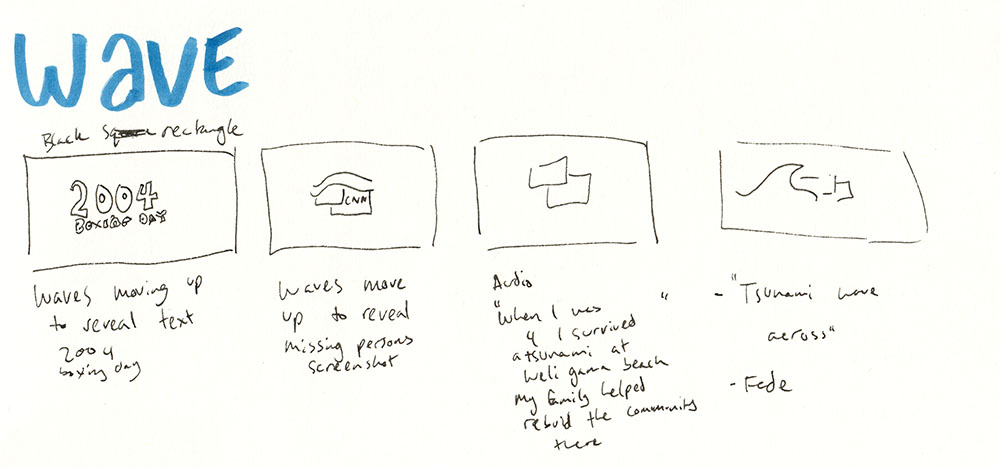 WAVE
Black rectangle
2004
BOXING DAY
Waves moving up
to reveal text
2004
boxing day
CNN
Waves move
up to reveal
missing persons
screenshot
Audio
"When I was "
4 I survived
a tsunami at
Weli gama beach
My family helped
rebuild the community
there
- "Tsunami wave
across"
- Fade